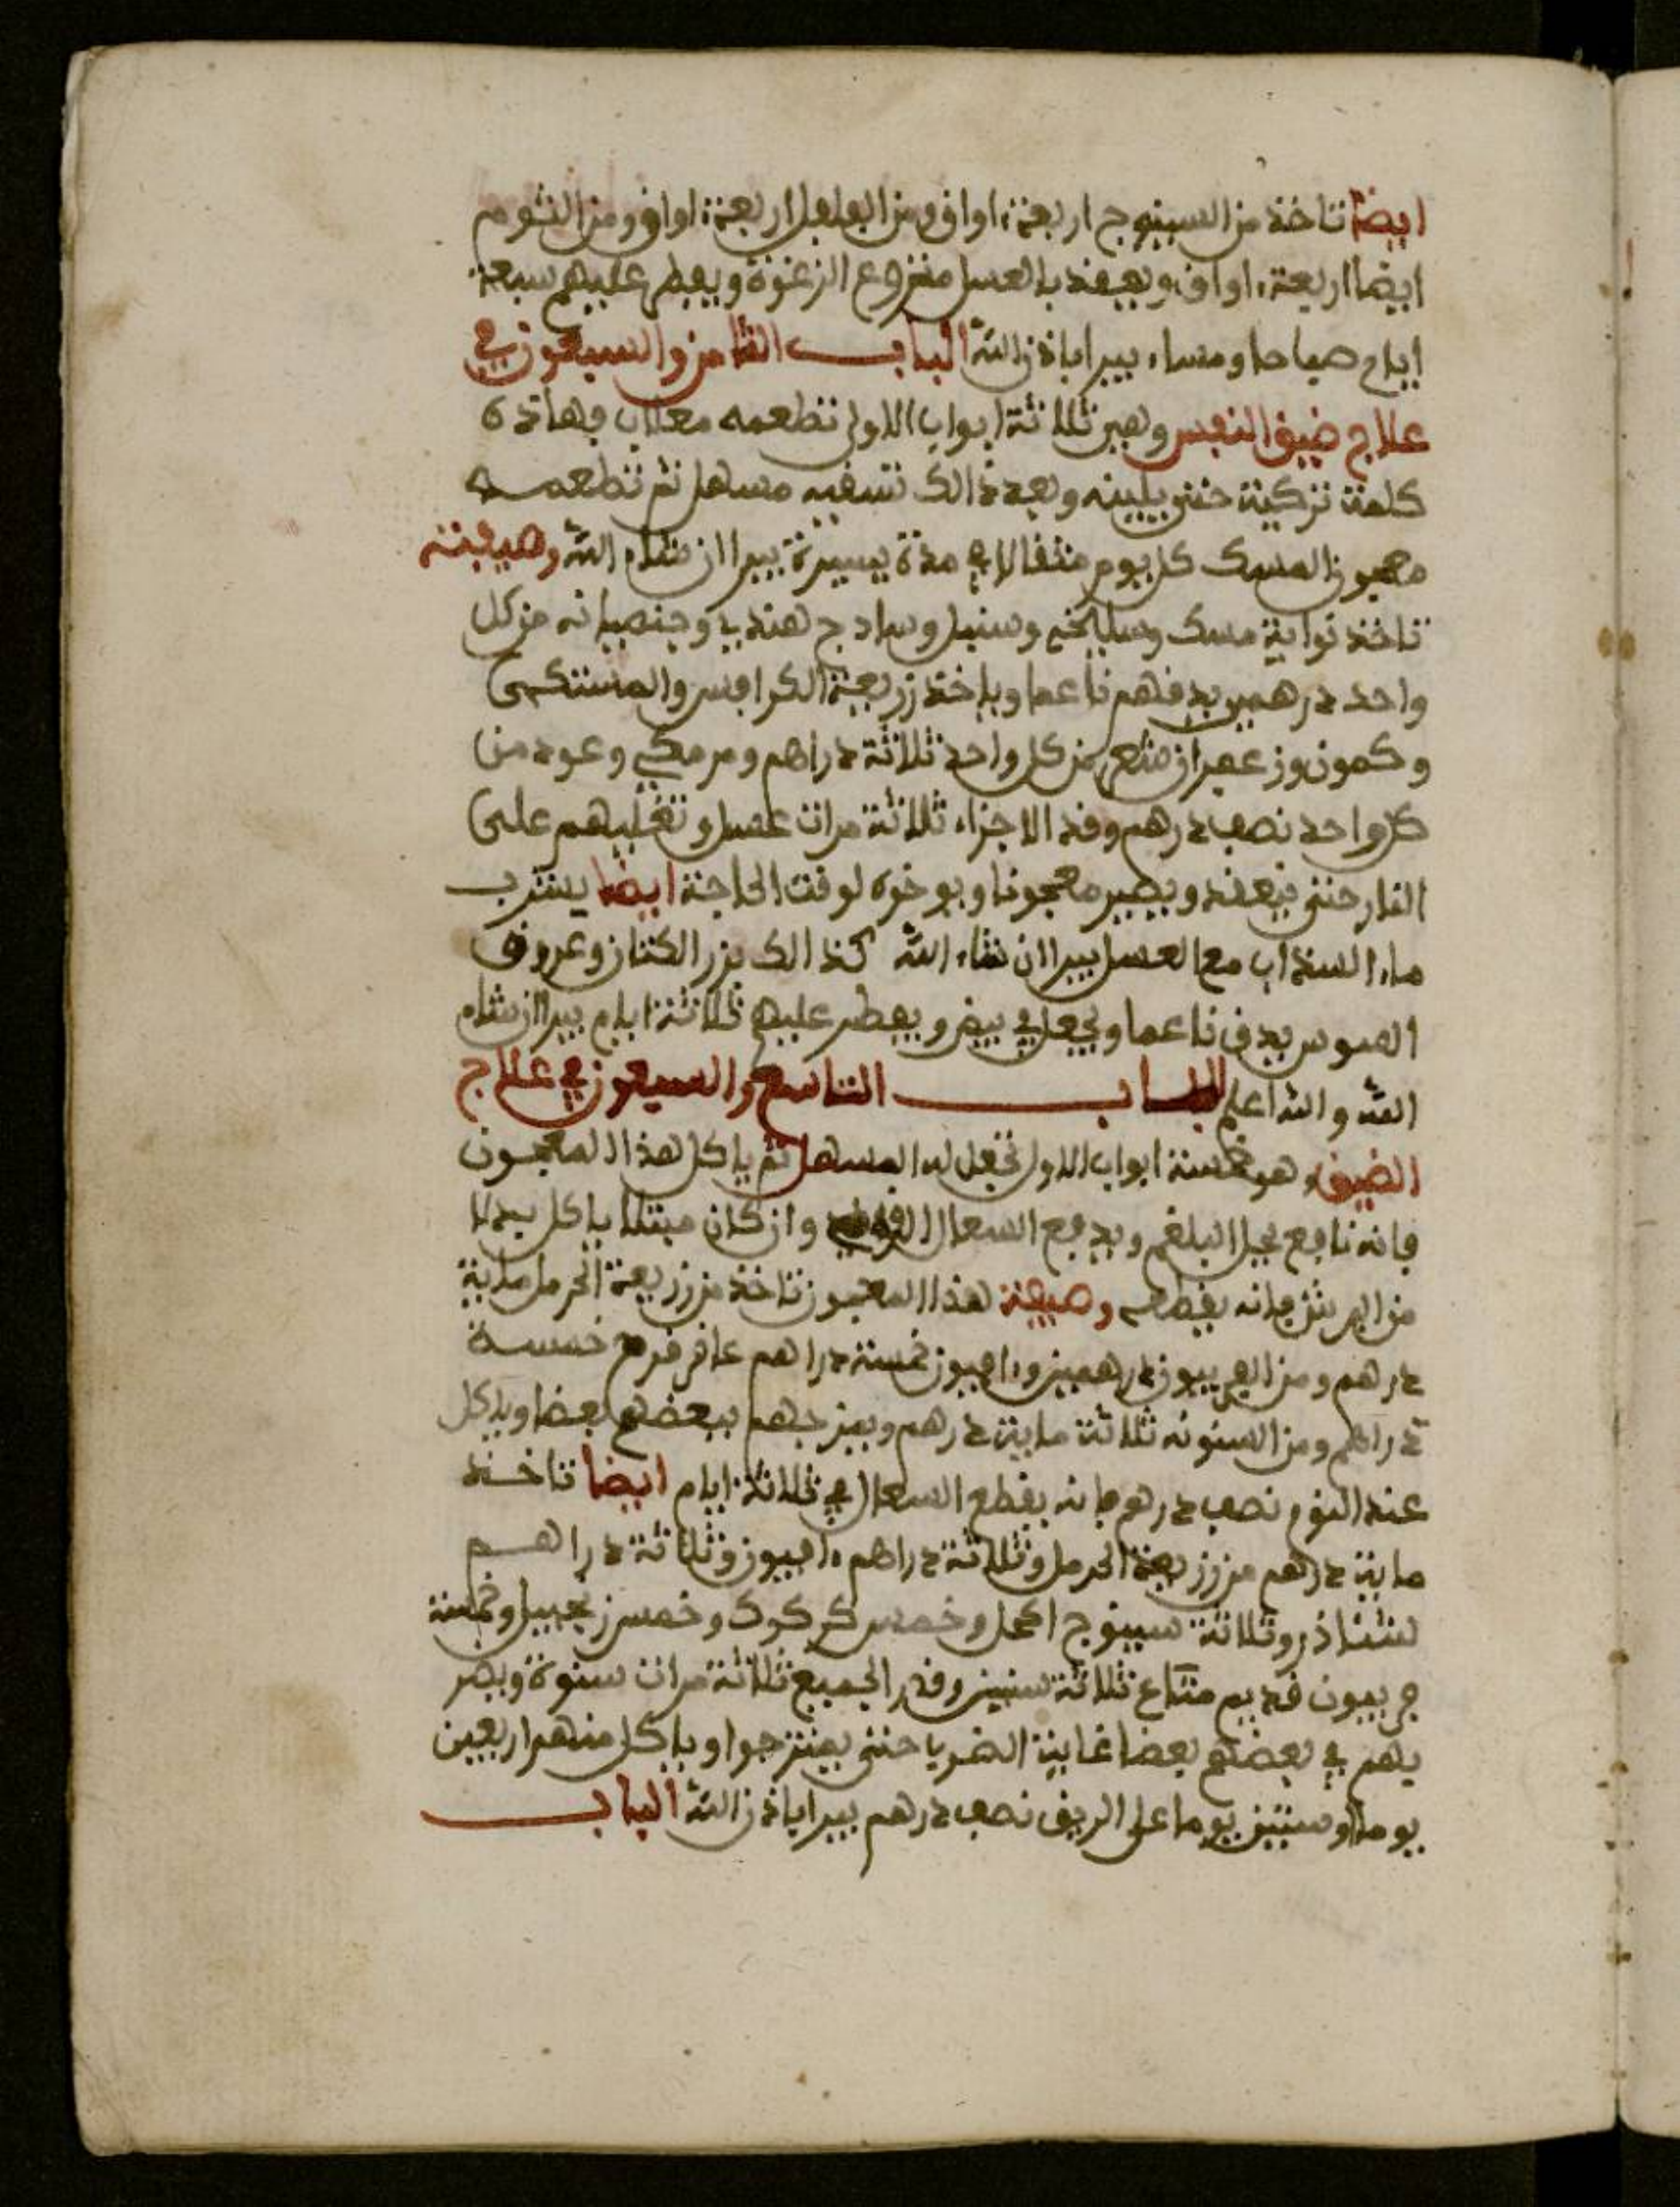 ايضا تاخذ من السينوج اربعة اواق ومن الفلفل اربعة اواق ومن الثوم
ايضا اربعة اواق ويعقد بالعسل منزوع الرغوة ويفطر عليهم سبعة
ايام صباحا ومساء يبرا باذن الله الباب الثامن والسبعون في
علاج ضيق النفس وهي ثلاثة ابواب الاول تطعمه معلاب وهاذه
كلمة تركية حتى يلينه وبعد ذالك تسقيه مسهل ثم تطعمه
معجون المسك كل يوم مثقالا في مدة يسيرة يبرا ان شاء الله وصفته
تاخذ نواية مسك وسليخى وسنبل وسادج هندي وجنصيانه من كل
واحد درهمين يدقهم ناعما وياخذ زريعة الكرافس والمستكى
وكمون وزعفران شعر من كل واحد ثلاثة دراهم ومر مكي وعود من
كل واحد نصف درهم وقد الاجزاء ثلاثة مرات عسل وتغليهم على
النار حتى ينعقد ويصير معجونا ويوخره لوقت الحاجة ايضا يشرب
ماء السنداب مع العسل يبرا ان شاء الله كذالك بزر الكتان وعروق
السوس يدق ناعما ويجعل في بيض ويفطر عليهم ثلاثة ايام يبرا ان شاء
الله والله اعلم الباب التاسع والسبعون في علاج
الضيق وهو خمسة ابواب الاول تجعل له المسهل ثم ياكل هذا المعجون
فانه نافع يحيل البلغم ويدفع السعال وان كان مبتلا ياكل بدلا
من البرش فانه يقطعه وصفة هذا المعجون تاخذ من زريعة الحرمل ماية
درهم ومن الفربيون درهمين وافيون خمسة دراهم عاقر قرح خمسة
دراهم ومن السنوته ثلاثة ماية درهم ويمزجهم ببعضهم بعضا وياكل
عند النوم نصف درهم فانه يقطع السعال في ثلاثة ايام ايضا تاخذ
ماية درهم من زريعة الحرمل وثلاثة دراهم افيون وثلاثة دراهم
لششاذر وثلاثة سينوج اكحل وخمس كركوك وخمس زنجبيل وخمسة
فربيون قديم متاع ثلاثة سنين وقدر الجميع ثلاثة مرات سنوة ويضر
بهم في بعضهم بعضا غاية الضربا حتى يمتزجوا وياكل منهم اربعين
يوما او ستين يوما على الريق نصف درهم يبرا باذن الله الباب